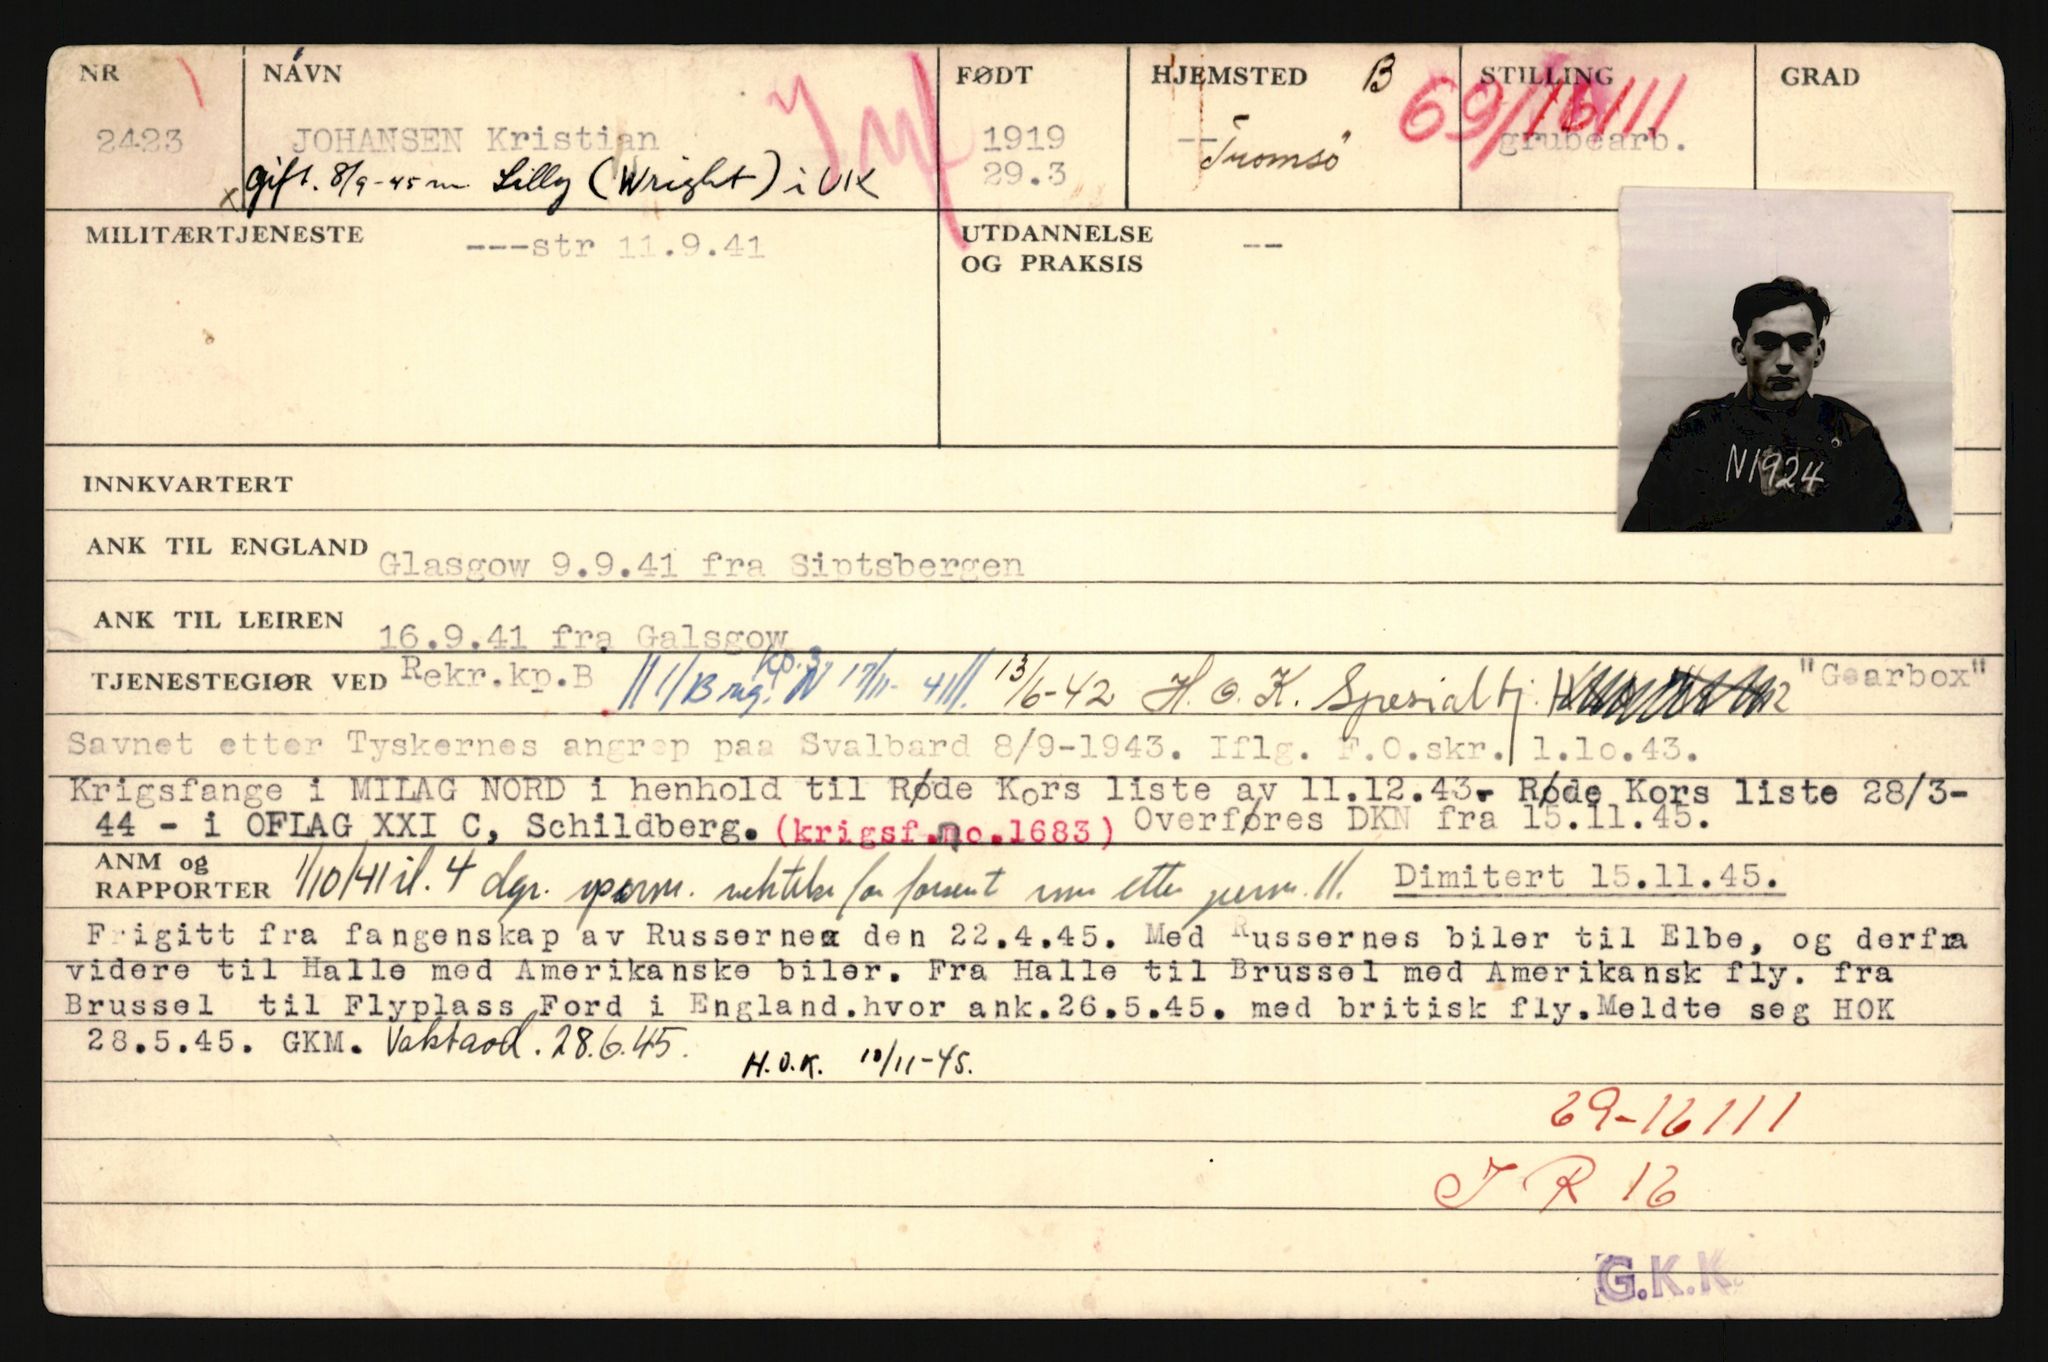 NR NAVN FØDT HJEMSTED B STILLING GRAD
69/16111
2423 JOHANSEN Kristian 1919 -- grubearb.
29.3 Tromsö
x gift. 8/9-45 m. Lilly (Wright) i UK
MILITÆRTJENESTE ---str 11.9.41 UTDANNELSE --
OG PRAKSIS
N1924
INNKVARTERT
ANK TIL ENGLAND Glasgow 9.9.41 fra Siptsbergen
ANK TIL LEIREN 16.9.41 fra Galsgow
TJENESTEGIØR VED Rekr.kp.B // 1/Brig. kp.3 N 17/11-41 //. 13/6-42 H.O.K. Spesialtj. "Gearbox"
Savnet etter Tyskernes angrep paa Svalbard 8/9-1943. Iflg. F.O.skr. 1.10.43.
Krigsfange i MILAG NORD i henhold til Røde Kors liste av 11.12.43. Røde Kors liste 28/3-
44 - i OFLAG XXI C, Schildberg. (krigsf.no.1683) Overføres DKN fra 15.11.45.
ANM og
RAPPORTER 1/10/41 il. 4 dgr. for etter perm. //. Dimitert 15.11.45.
Frigitt fra fangenskap av Russerne den 22.4.45. Med Russernes biler til Elbe, og derfra
videre til Halle med Amerikanske biler. Fra Halle til Brussel med Amerikansk fly. fra
Brussel til Flyplass Ford i England.hvor ank.26.5.45. med britisk fly.Meldte seg HOK
28.5.45. GKM. Vaktavd. 28.6.45.
H.O.K. 10/11-45.
69-16111
J R 16
G.K.K.